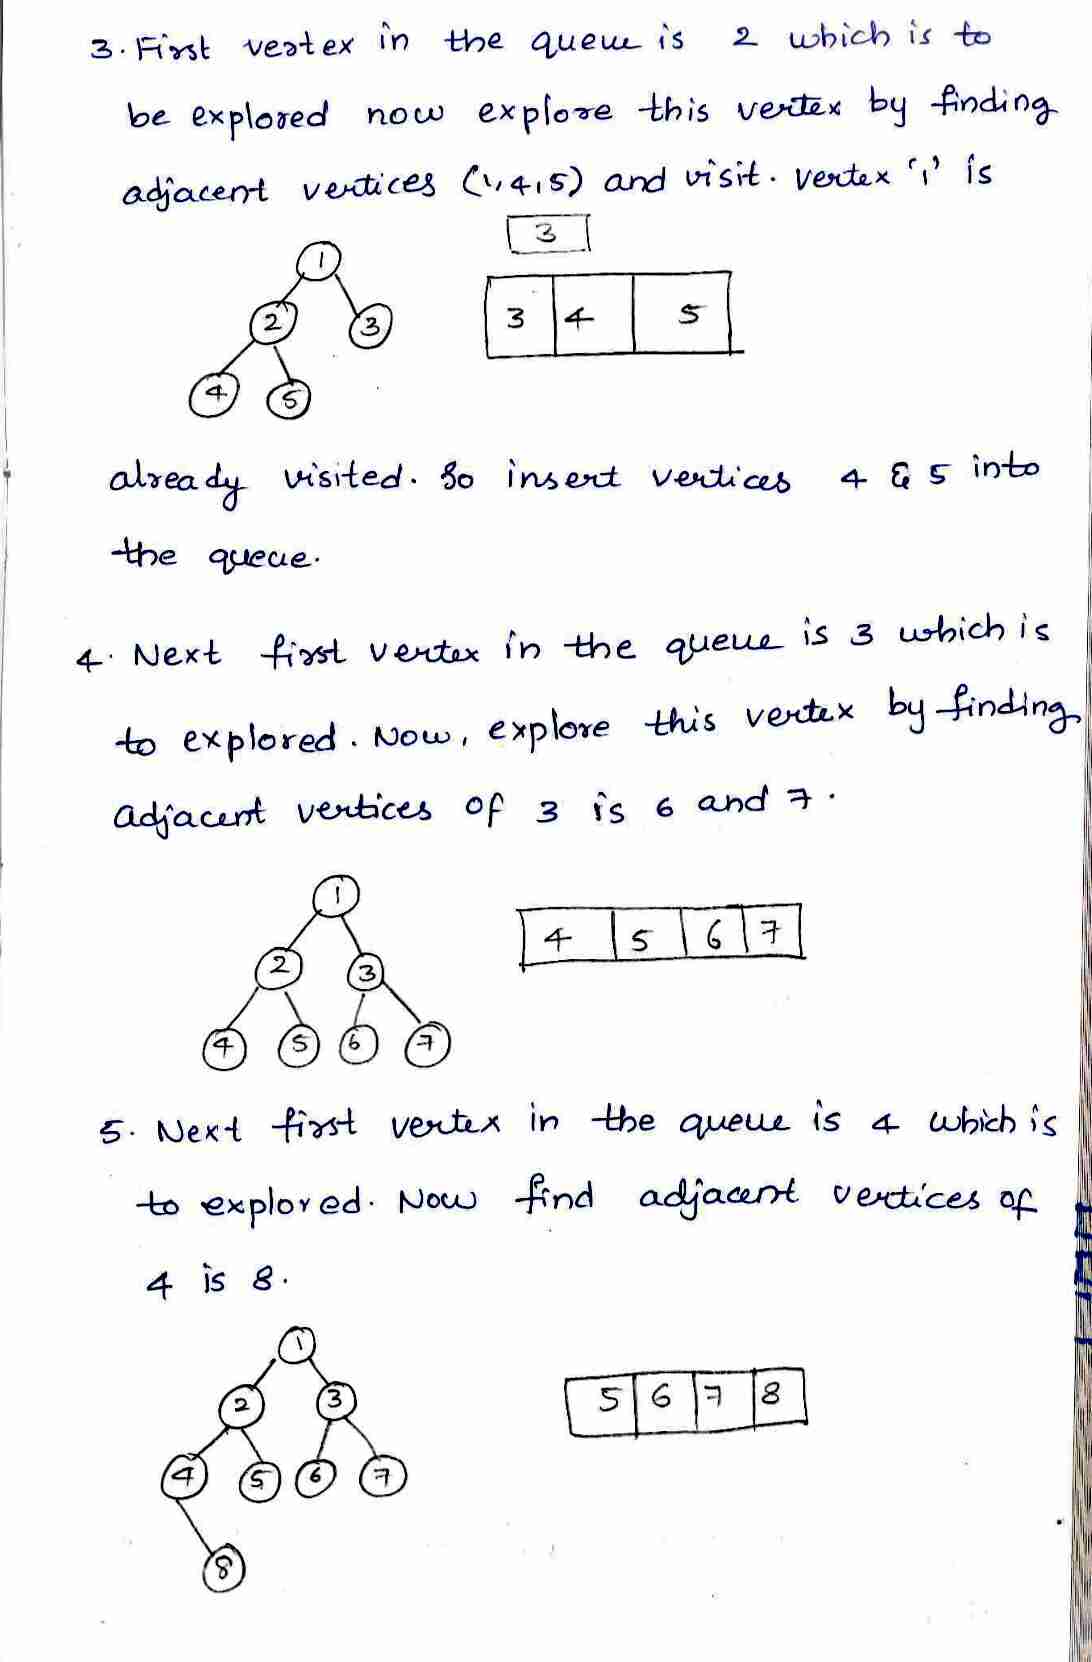 3. First vertex in the queue is 2 which is to
be explored now explore this vertex by finding
adjacent vertices (1,4,5) and visit. vertex '1' is
3
1
3 4 5
2 3
4 5
already visited. So insert vertices 4 & 5 into
the queue.
4. Next first vertex in the queue is 3 which is
to explored. Now, explore this vertex by finding
adjacent vertices of 3 is 6 and 7.
1
4 5 6 7
2 3
4 5 6 7
5. Next first vertex in the queue is 4 which is
to explored. Now find adjacent vertices of
4 is 8.
1
5 6 7 8
2 3
4 5 6 7
8